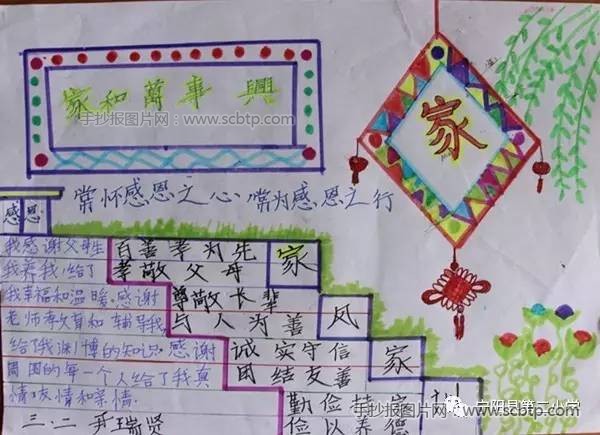 家和萬事興
手抄报图片网：www.scbtp.com
家
常怀感恩之心,常为感恩之行
感恩
我感谢父母生
我养我,给了
我幸福和温暖.感谢
老师教育和辅导我,
给了我渊博的知识.感谢
周围的每一个人给了我真
情.友情和亲情.
三.二 尹瑞贤
百善孝为先
孝敬父母
家
尊敬长辈
与人为善
风
诚实守信
团结友善
家
勤俭持家
俭以养德
训
手抄报图片网：www.scbtp.com
宁阳县第二小学